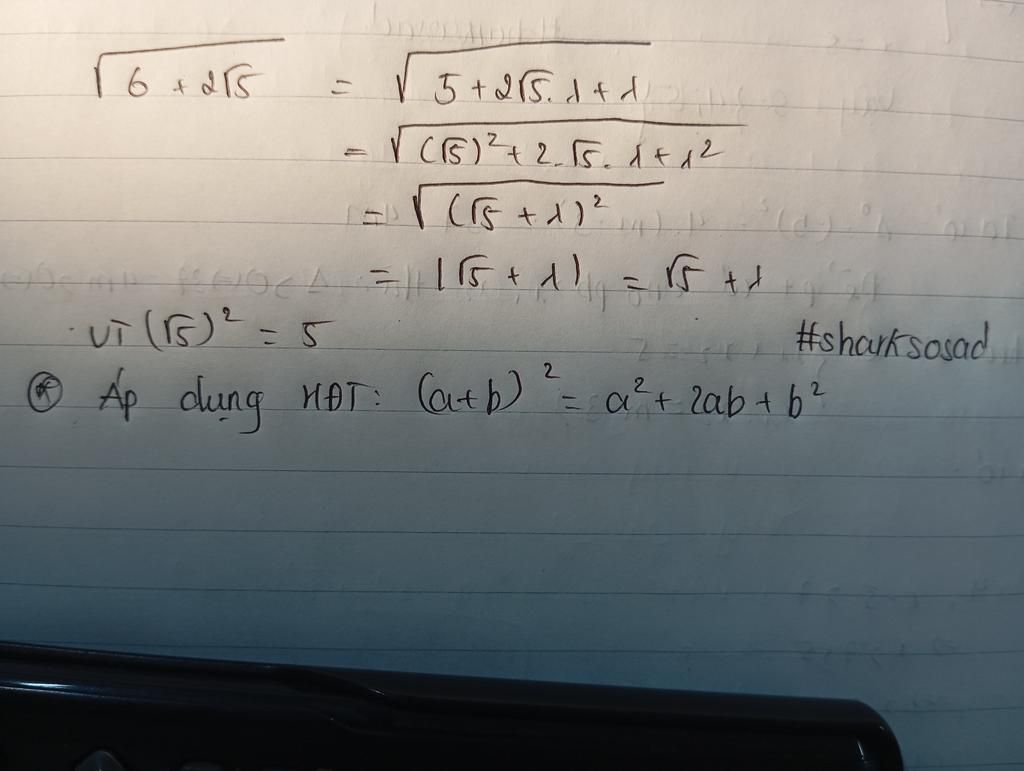 √(6 + 2√5) = √(5 + 2√5. 1 + 1)
= √((√5)² + 2.√5. 1 + 1²)
= √((√5 + 1)²)
= |√5 + 1| = √5 + 1
Vì (√5)² = 5
#sharksosad
⊛ Áp dụng HĐT: (a+b)² = a² + 2ab + b²